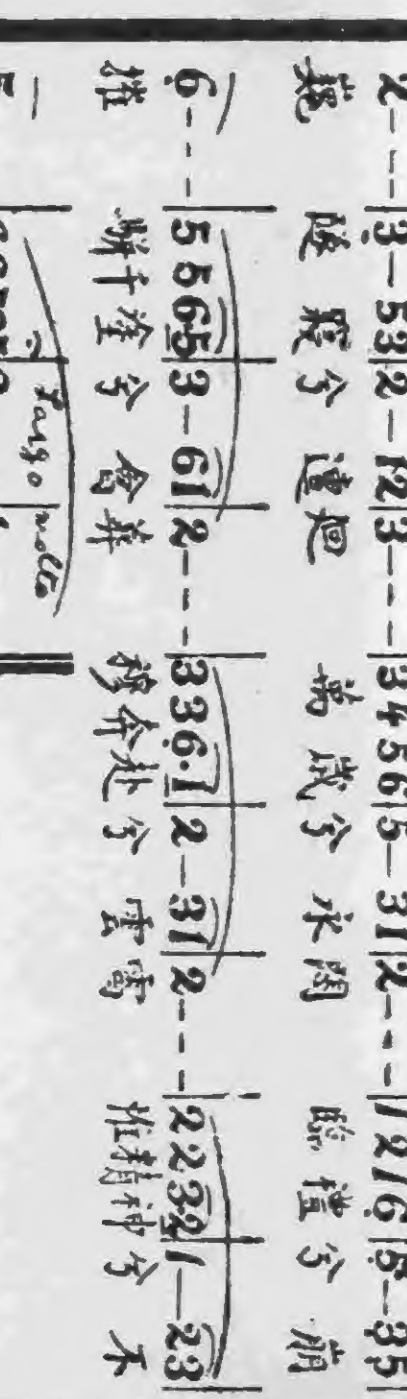 2 - - - | 3 - 53 | 2 - 12 | 3 - - - | 3 4 5 6 | 5 - 31 | 2 - - - | 1 2 1 6 | 5 - 35
陵殿兮 邅迴 萬歲兮 永閟 臨禮兮 崩
6 - - - | 5 5 65 | 3 - 61 | 2 - - - | 3 3 6·1 | 2 - 31 | 2 - - - | 2 2 32 | 1 - 23 |
摧 駢千塗兮 會葬 穆奔赴兮 雲 惟精神兮 不
Largo molto